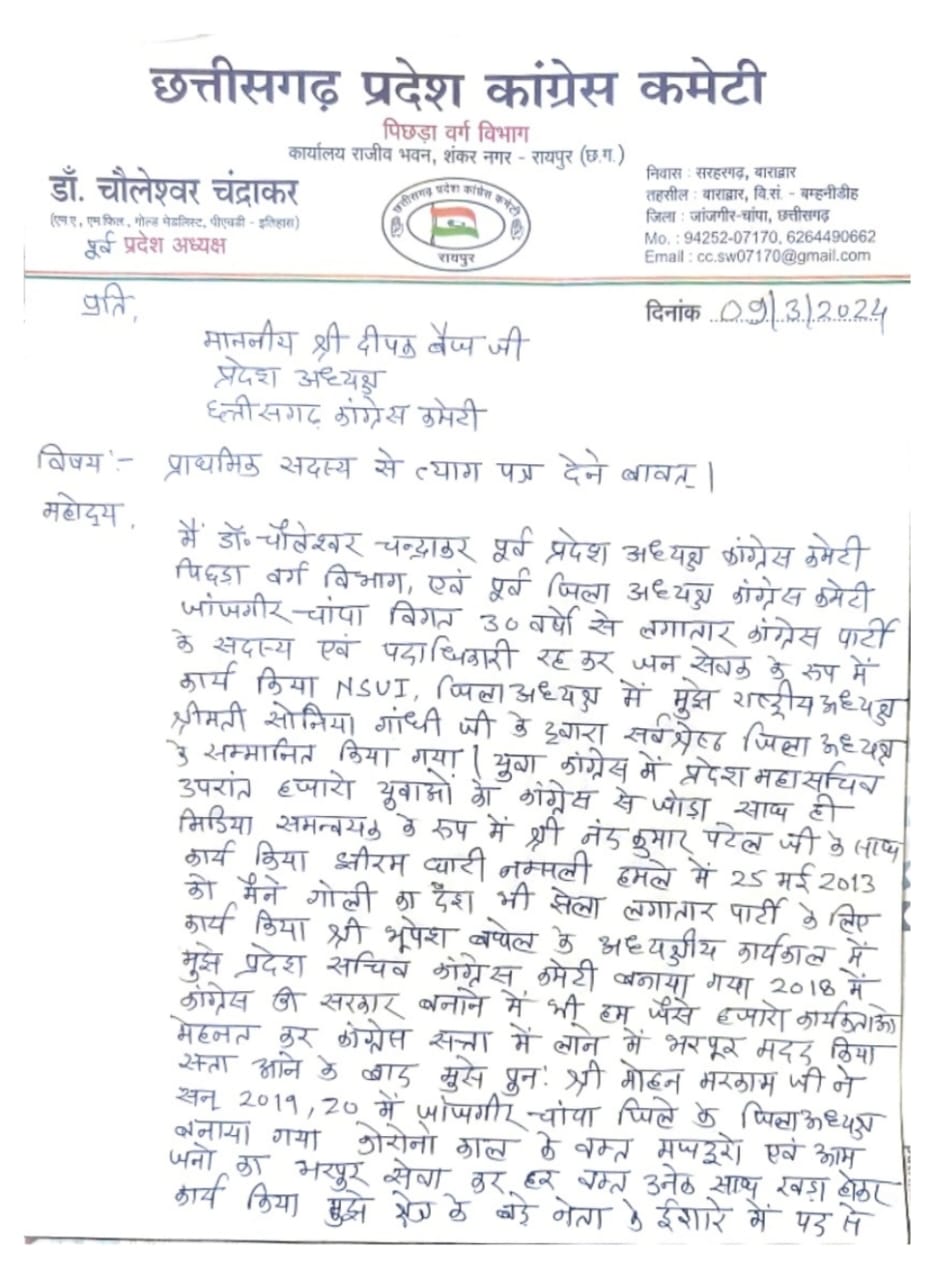 छत्तीसगढ़ प्रदेश कांग्रेस कमेटी
पिछड़ा वर्ग विभाग
कार्यालय राजीव भवन, शंकर नगर - रायपुर (छ.ग.)
डॉ. चौलेश्वर चंद्राकर
(एम.ए, एम.फिल, गोल्ड मेडलिस्ट, पीएचडी - इतिहास)
पूर्व प्रदेश अध्यक्ष
छत्तीसगढ़ प्रदेश कांग्रेस कमेटी
रायपुर
निवास : सरहरगढ़, बाराद्वार
तहसील : बाराद्वार, वि.सं. - बम्हनीडीह
जिला : जांजगीर-चांपा, छत्तीसगढ़
Mo. : 94252-07170, 6264490662
Email : cc.sw07170@gmail.com
दिनांक 09/3/2024
प्रति,
माननीय श्री दीपक बैज जी
प्रदेश अध्यक्ष
छत्तीसगढ़ कांग्रेस कमेटी
विषय :- प्राथमिक सदस्य से त्याग पत्र देने बावत्।
महोदय,
मैं डॉ. चौलेश्वर चन्द्राकर पूर्व प्रदेश अध्यक्ष कांग्रेस कमेटी
पिछड़ा वर्ग विभाग, एवं पूर्व जिला अध्यक्ष कांग्रेस कमेटी
जांजगीर-चांपा विगत 30 वर्षो से लगातार कांग्रेस पार्टी
के सदस्य एवं पदाधिकारी रह कर जन सेवक के रूप में
कार्य किया NSUI, जिला अध्यक्ष में मुझे राष्ट्रीय अध्यक्ष
श्रीमती सोनिया गांधी जी के द्वारा सर्वश्रेष्ठ जिला अध्यक्ष
से सम्मानित किया गया। युवा कांग्रेस में प्रदेश महासचिव
उपरांत हजारो युवाओं को कांग्रेस से जोड़ा साथ ही
मिडिया समन्वयक के रूप में श्री नंद कुमार पटेल जी के साथ
कार्य किया झीरम घाटी नक्सली हमले में 25 मई 2013
को मैंने गोली का दंश भी झेला लगातार पार्टी के लिए
कार्य किया श्री भूपेश बघेल के अध्यक्षीय कार्यकाल में
मुझे प्रदेश सचिव कांग्रेस कमेटी बनाया गया 2018 में
कांग्रेस की सरकार बनाने में भी हम जैसे हजारो कार्यकर्ताओ
मेहनत कर कांग्रेस सत्ता में लाने में भरपूर मदद किया
सत्ता आने के बाद मुझे पुन: श्री मोहन मरकाम जी ने
सन् 2019,20 में जांजगीर-चांपा जिले के जिला अध्यक्ष
बनाया गया कोरोना काल के वक्त मजदूरो एवं आम
जनो का भरपुर सेवा कर हर वक्त उनके साथ खड़ा होकर
कार्य किया मुझे के बड़े नेता के ईशारे में पद से